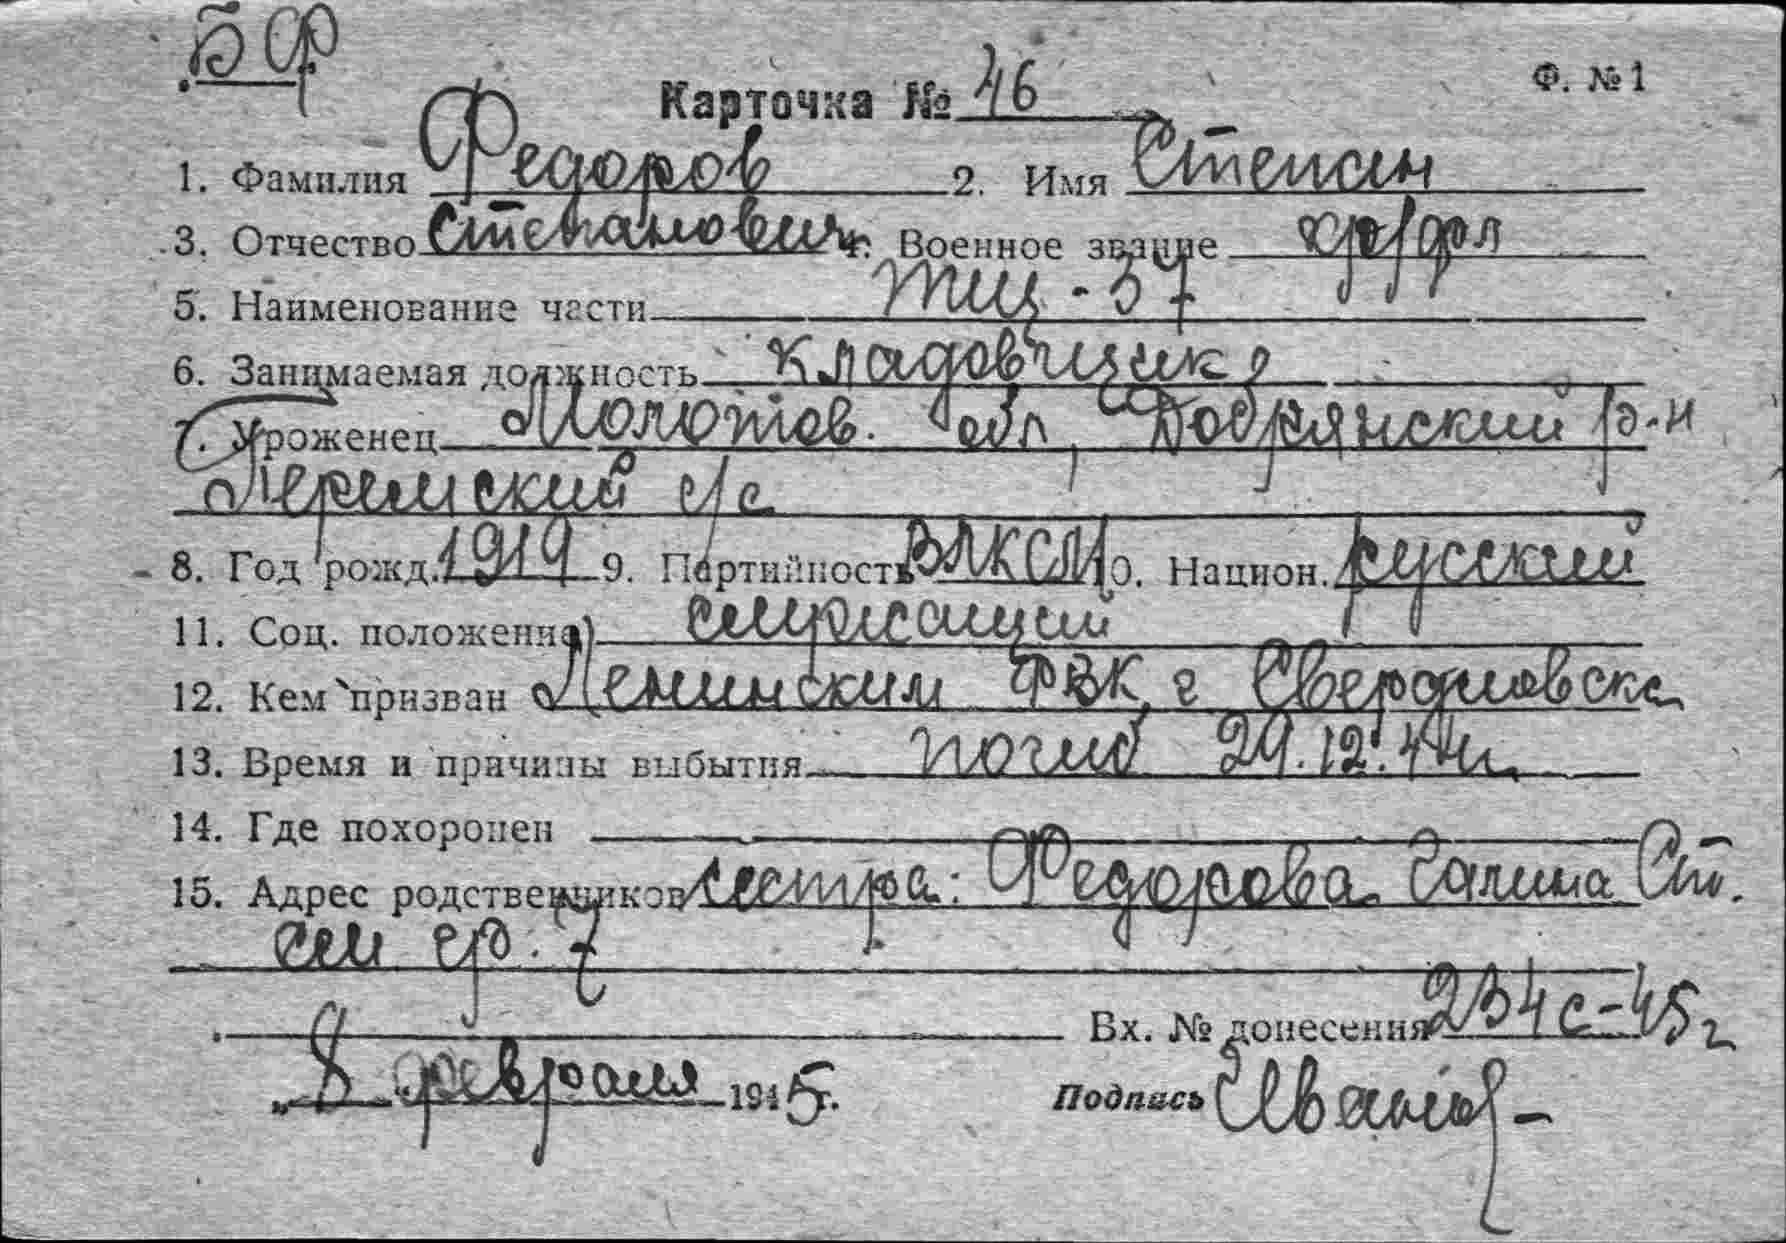 БФ
Ф. №1
Карточка № 46
1. Фамилия Федоров 2. Имя Степан
3. Отчество Степанович 4. Военное звание кр/фл
5. Наименование части ТЩ-37
6. Занимаемая должность кладовщик
7. Уроженец Молотов. обл, Добрянский р-н
Пермский с/с
8. Год рожд. 1919 9. Партийность ВЛКСМ 10. Национ. русский
11. Соц. положение служащий
12. Кем призван Ленинским РВК г Свердловска
13. Время и причины выбытия погиб 29.12.44г.
14. Где похоронен
15. Адрес родственников сестра: Федорова Галина Ст.
см гр. 7
Вх. № донесения 234с-45г
„8 февраля 1945г. Подпись Иванов